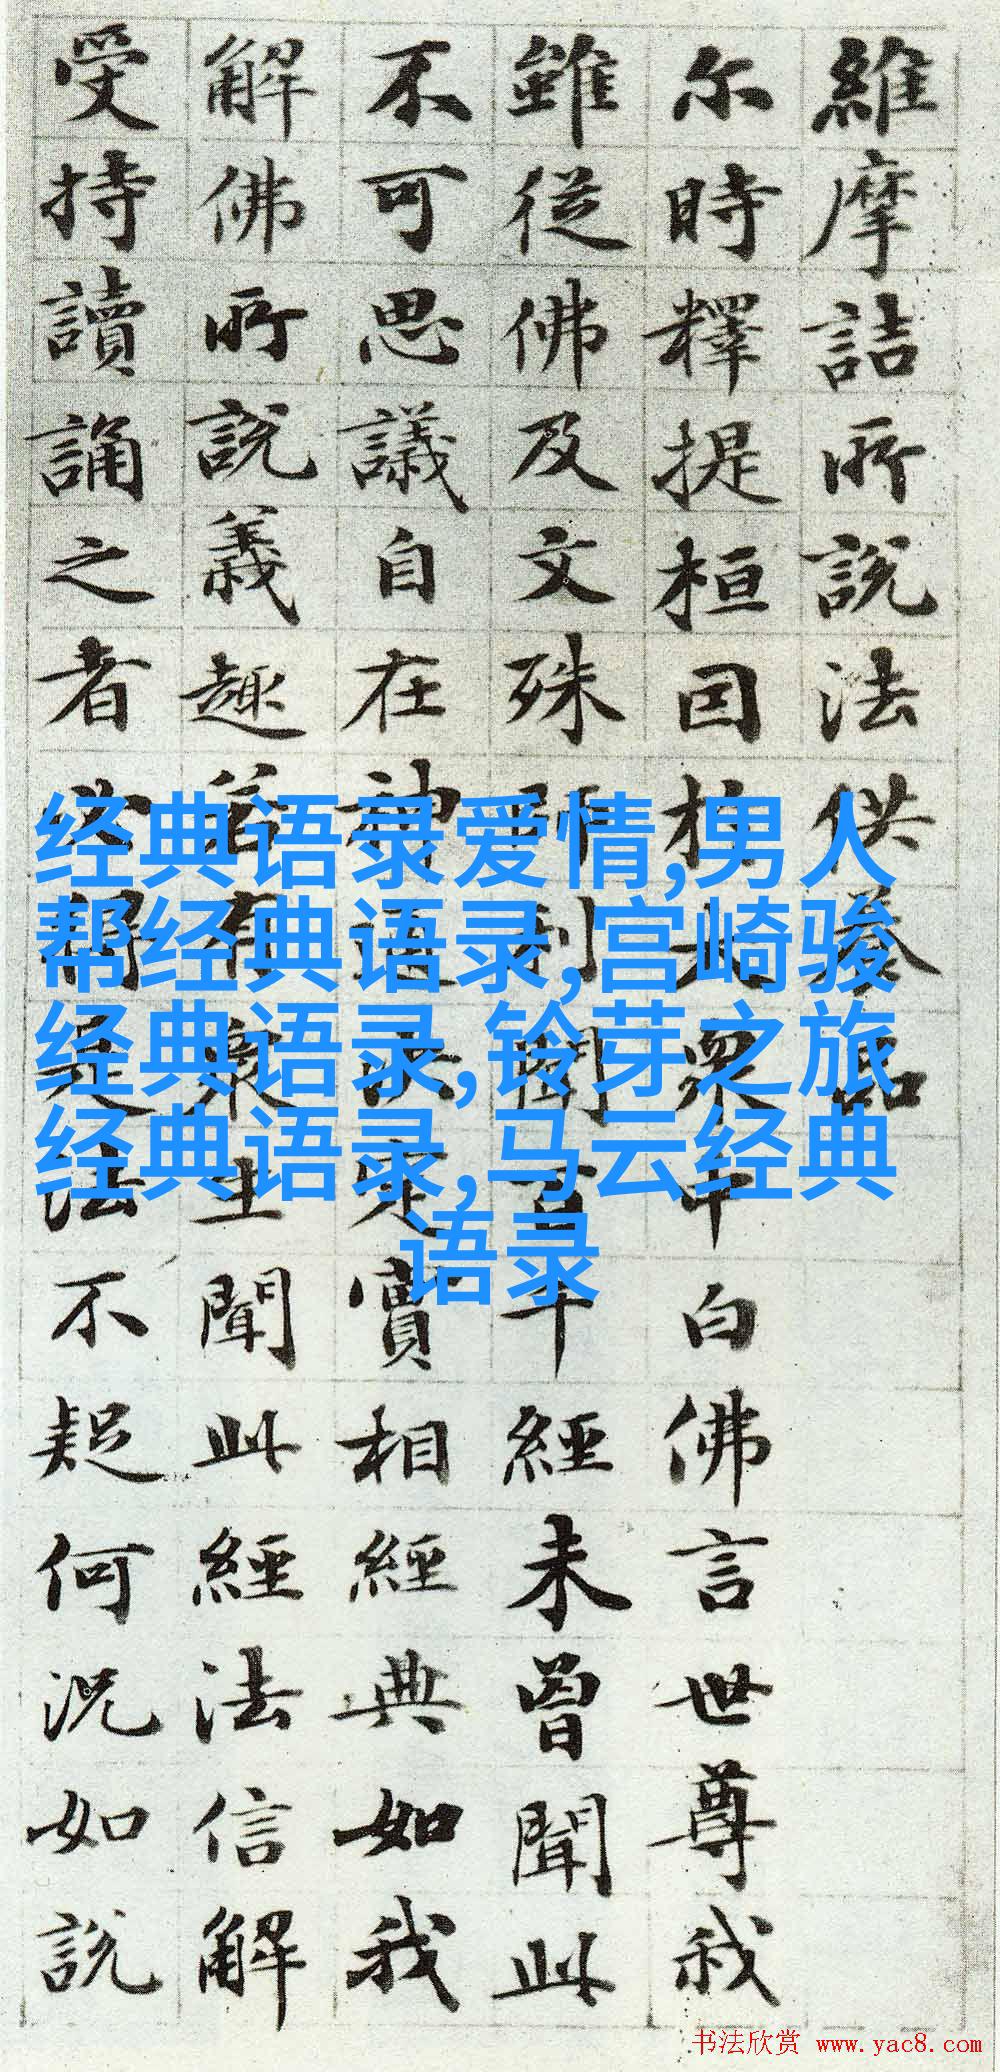 維摩詰所說法供養品
尔時釋提桓因於大眾中白佛言世尊我
雖從佛及文殊師利聞百千經未曾聞此
不可思議自在神通決定實相經典如我
解佛所說義趣若有眾生聞此經法信解
受持讀誦之者必得是法不疑何況如說
经典语录爱情,男人
帮经典语录,宫崎骏
经典语录,铃芽之旅
经典语录,马云经典
语录
书法欣赏 www.yac8.com